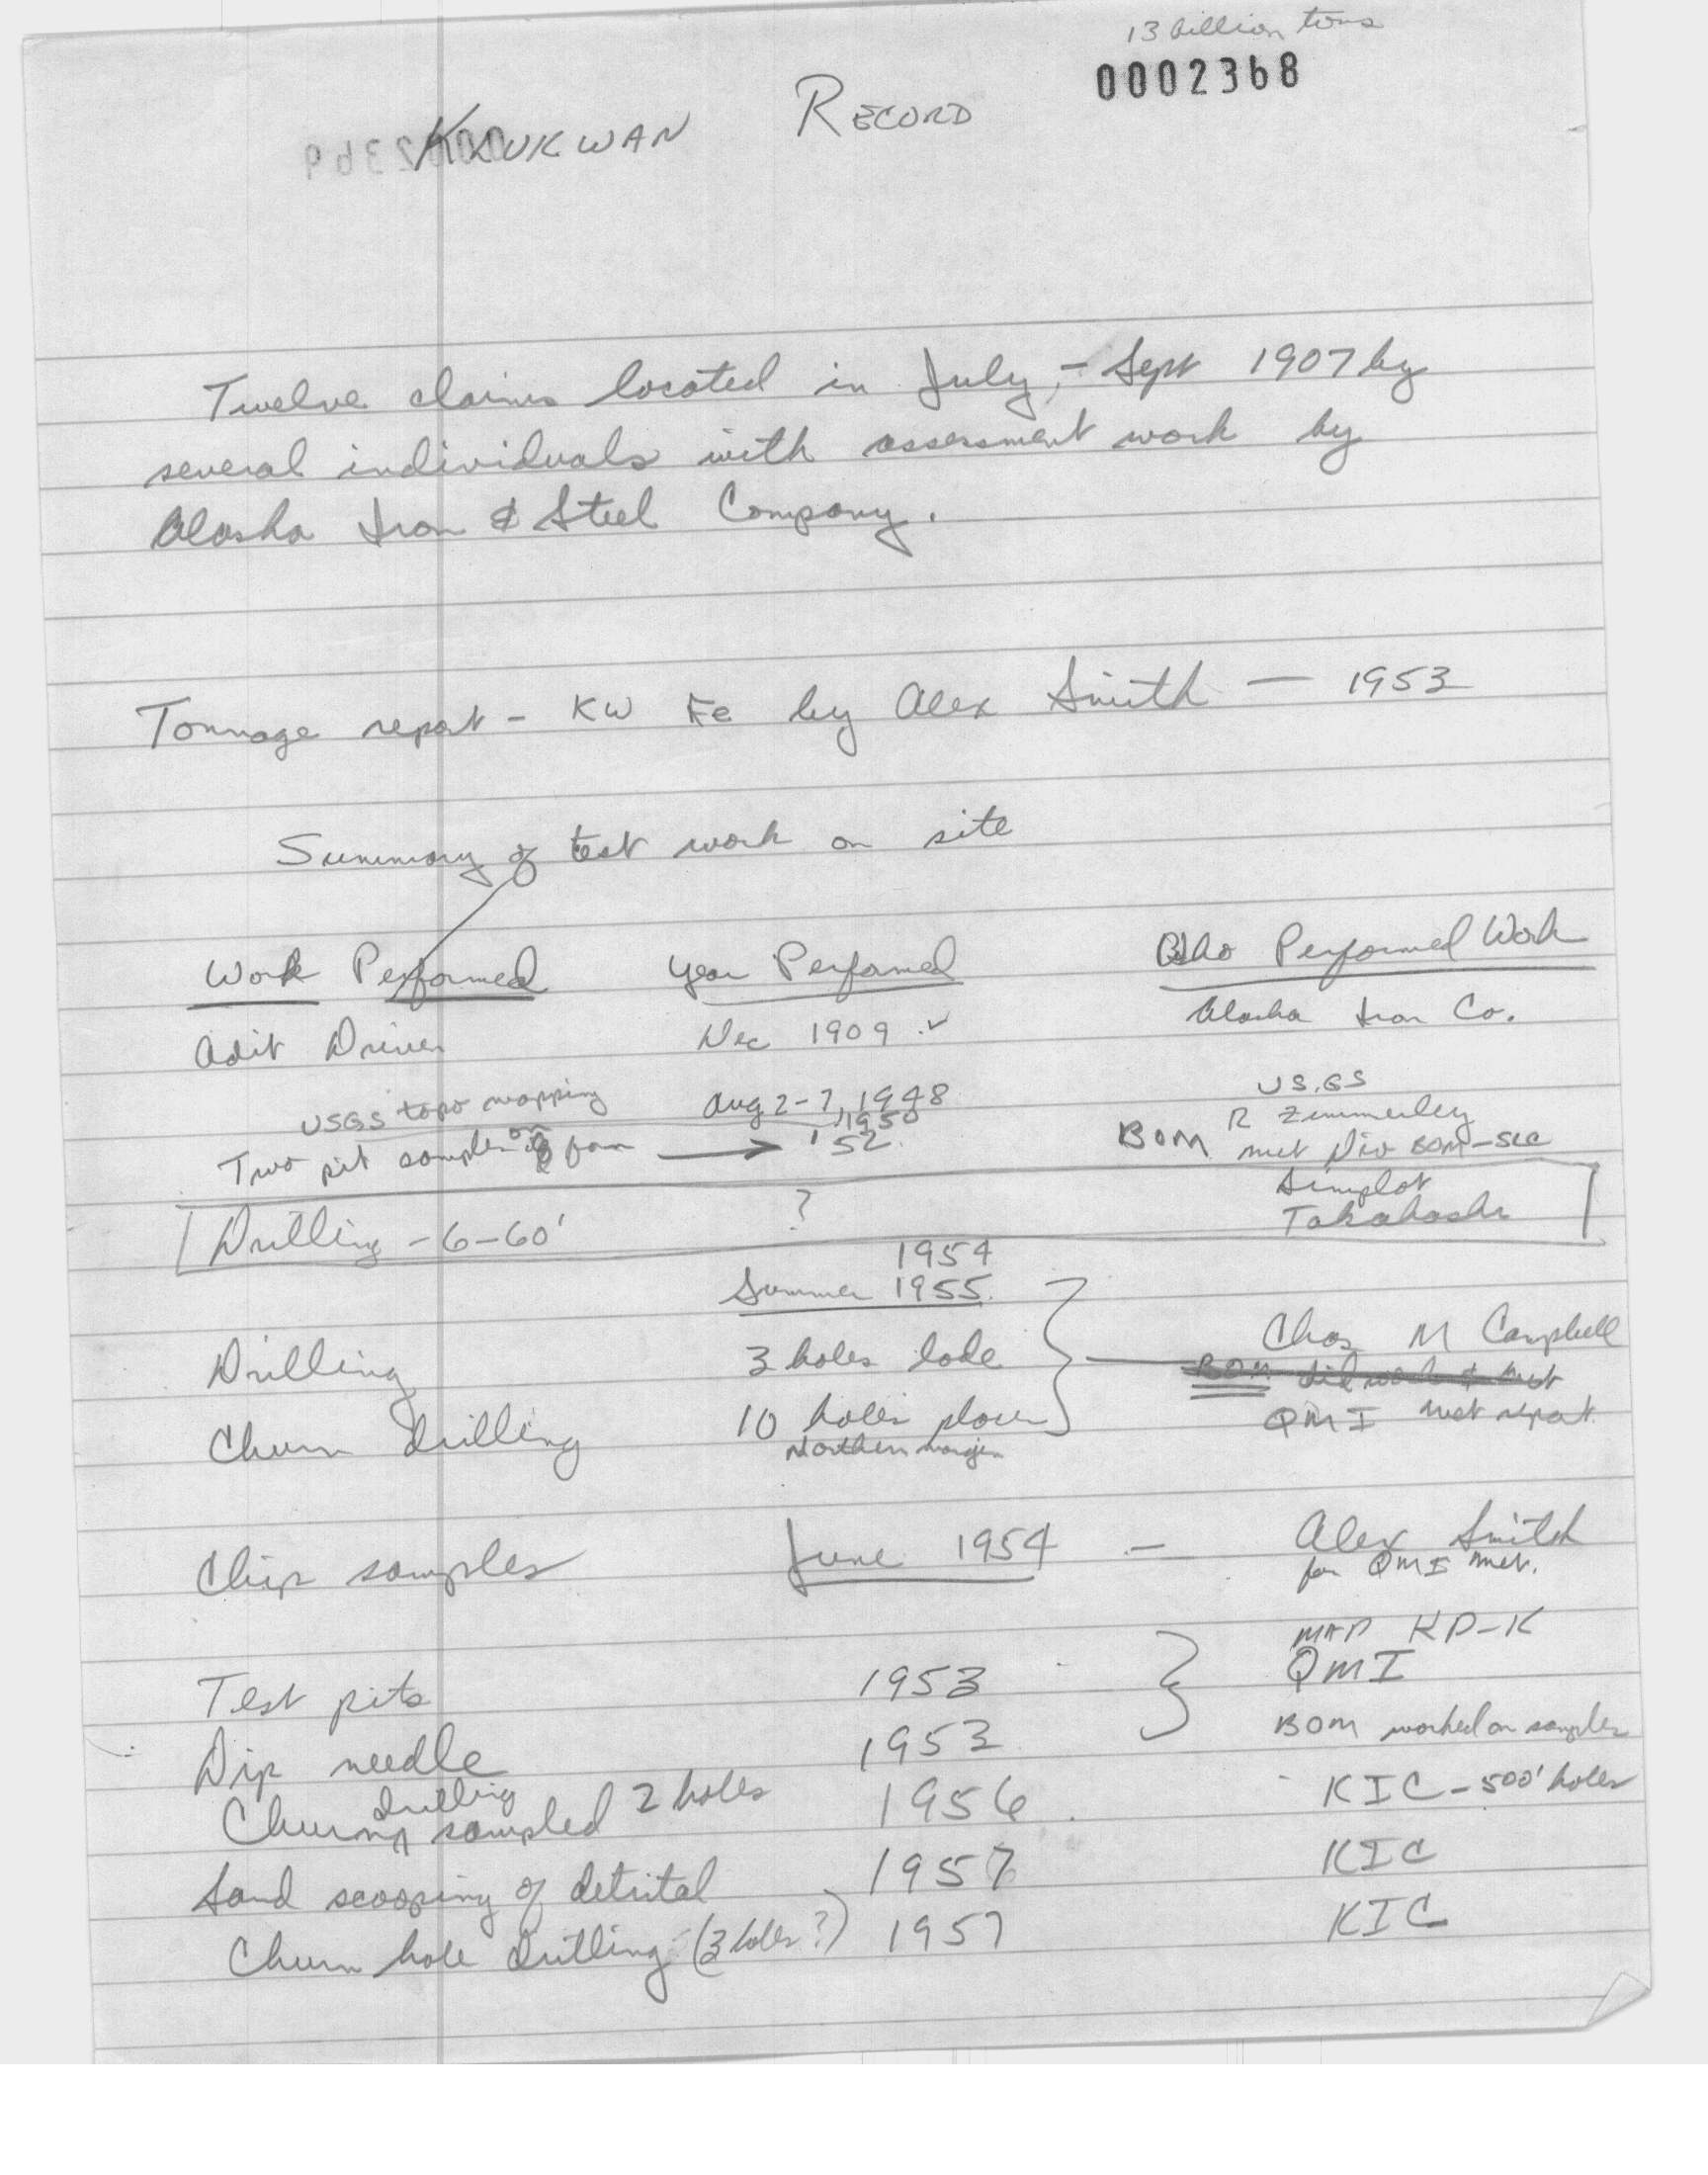 13 billion tons
0002368
KLUKWAN RECORD
Twelve claims located in July, - Sept 1907 by
several individuals with assessment work by
Alaska Iron & Steel Company.
Tonnage report - KW Fe by Alex Smith — 1953
Summary of test work on site
Work Performed Year Performed Who Performed Work
Adit Driven Dec 1909 ✓ Alaska Iron Co.
USGS topo mapping Aug 2-7, 1948 U.S.GS
1950 R Zimmerley
Two pit samples on fan → '52 BOM met Div BOM-SLC
Simplot
Drilling - 6-60' ? Takahashi
1954
Summer 1955.
Drilling 3 holes lode Chas M Campbell
BOM did work & met
Churn drilling 10 holes placer QMI met report
Northern margin
Chip samples June 1954 — Alex Smith
for QMI met.
MAP KP-K
Test pits 1953 QMI
Dip needle 1953 BOM worked on samples
Churn drilling sampled 2 holes 1956 - KIC - 500' holes
Sand scooping of detrital 1957 KIC
Churn hole drilling (3 holes?) 1957 KIC